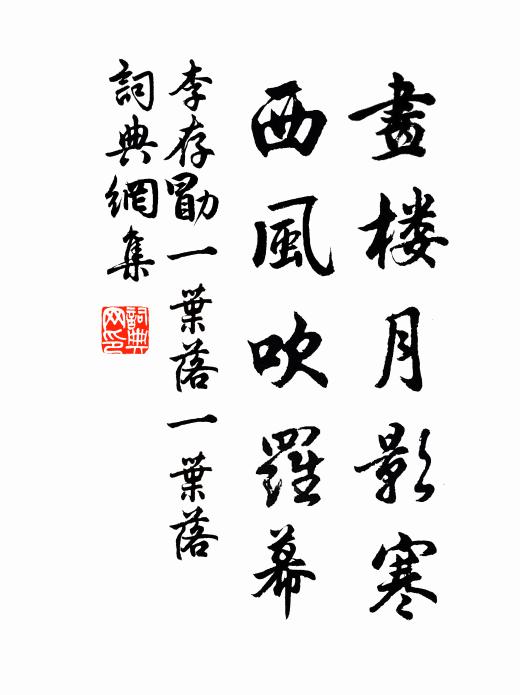 畫楼月影寒
西風吹羅幕
李存勖一葉落一葉落
詞典網集
詞典网印